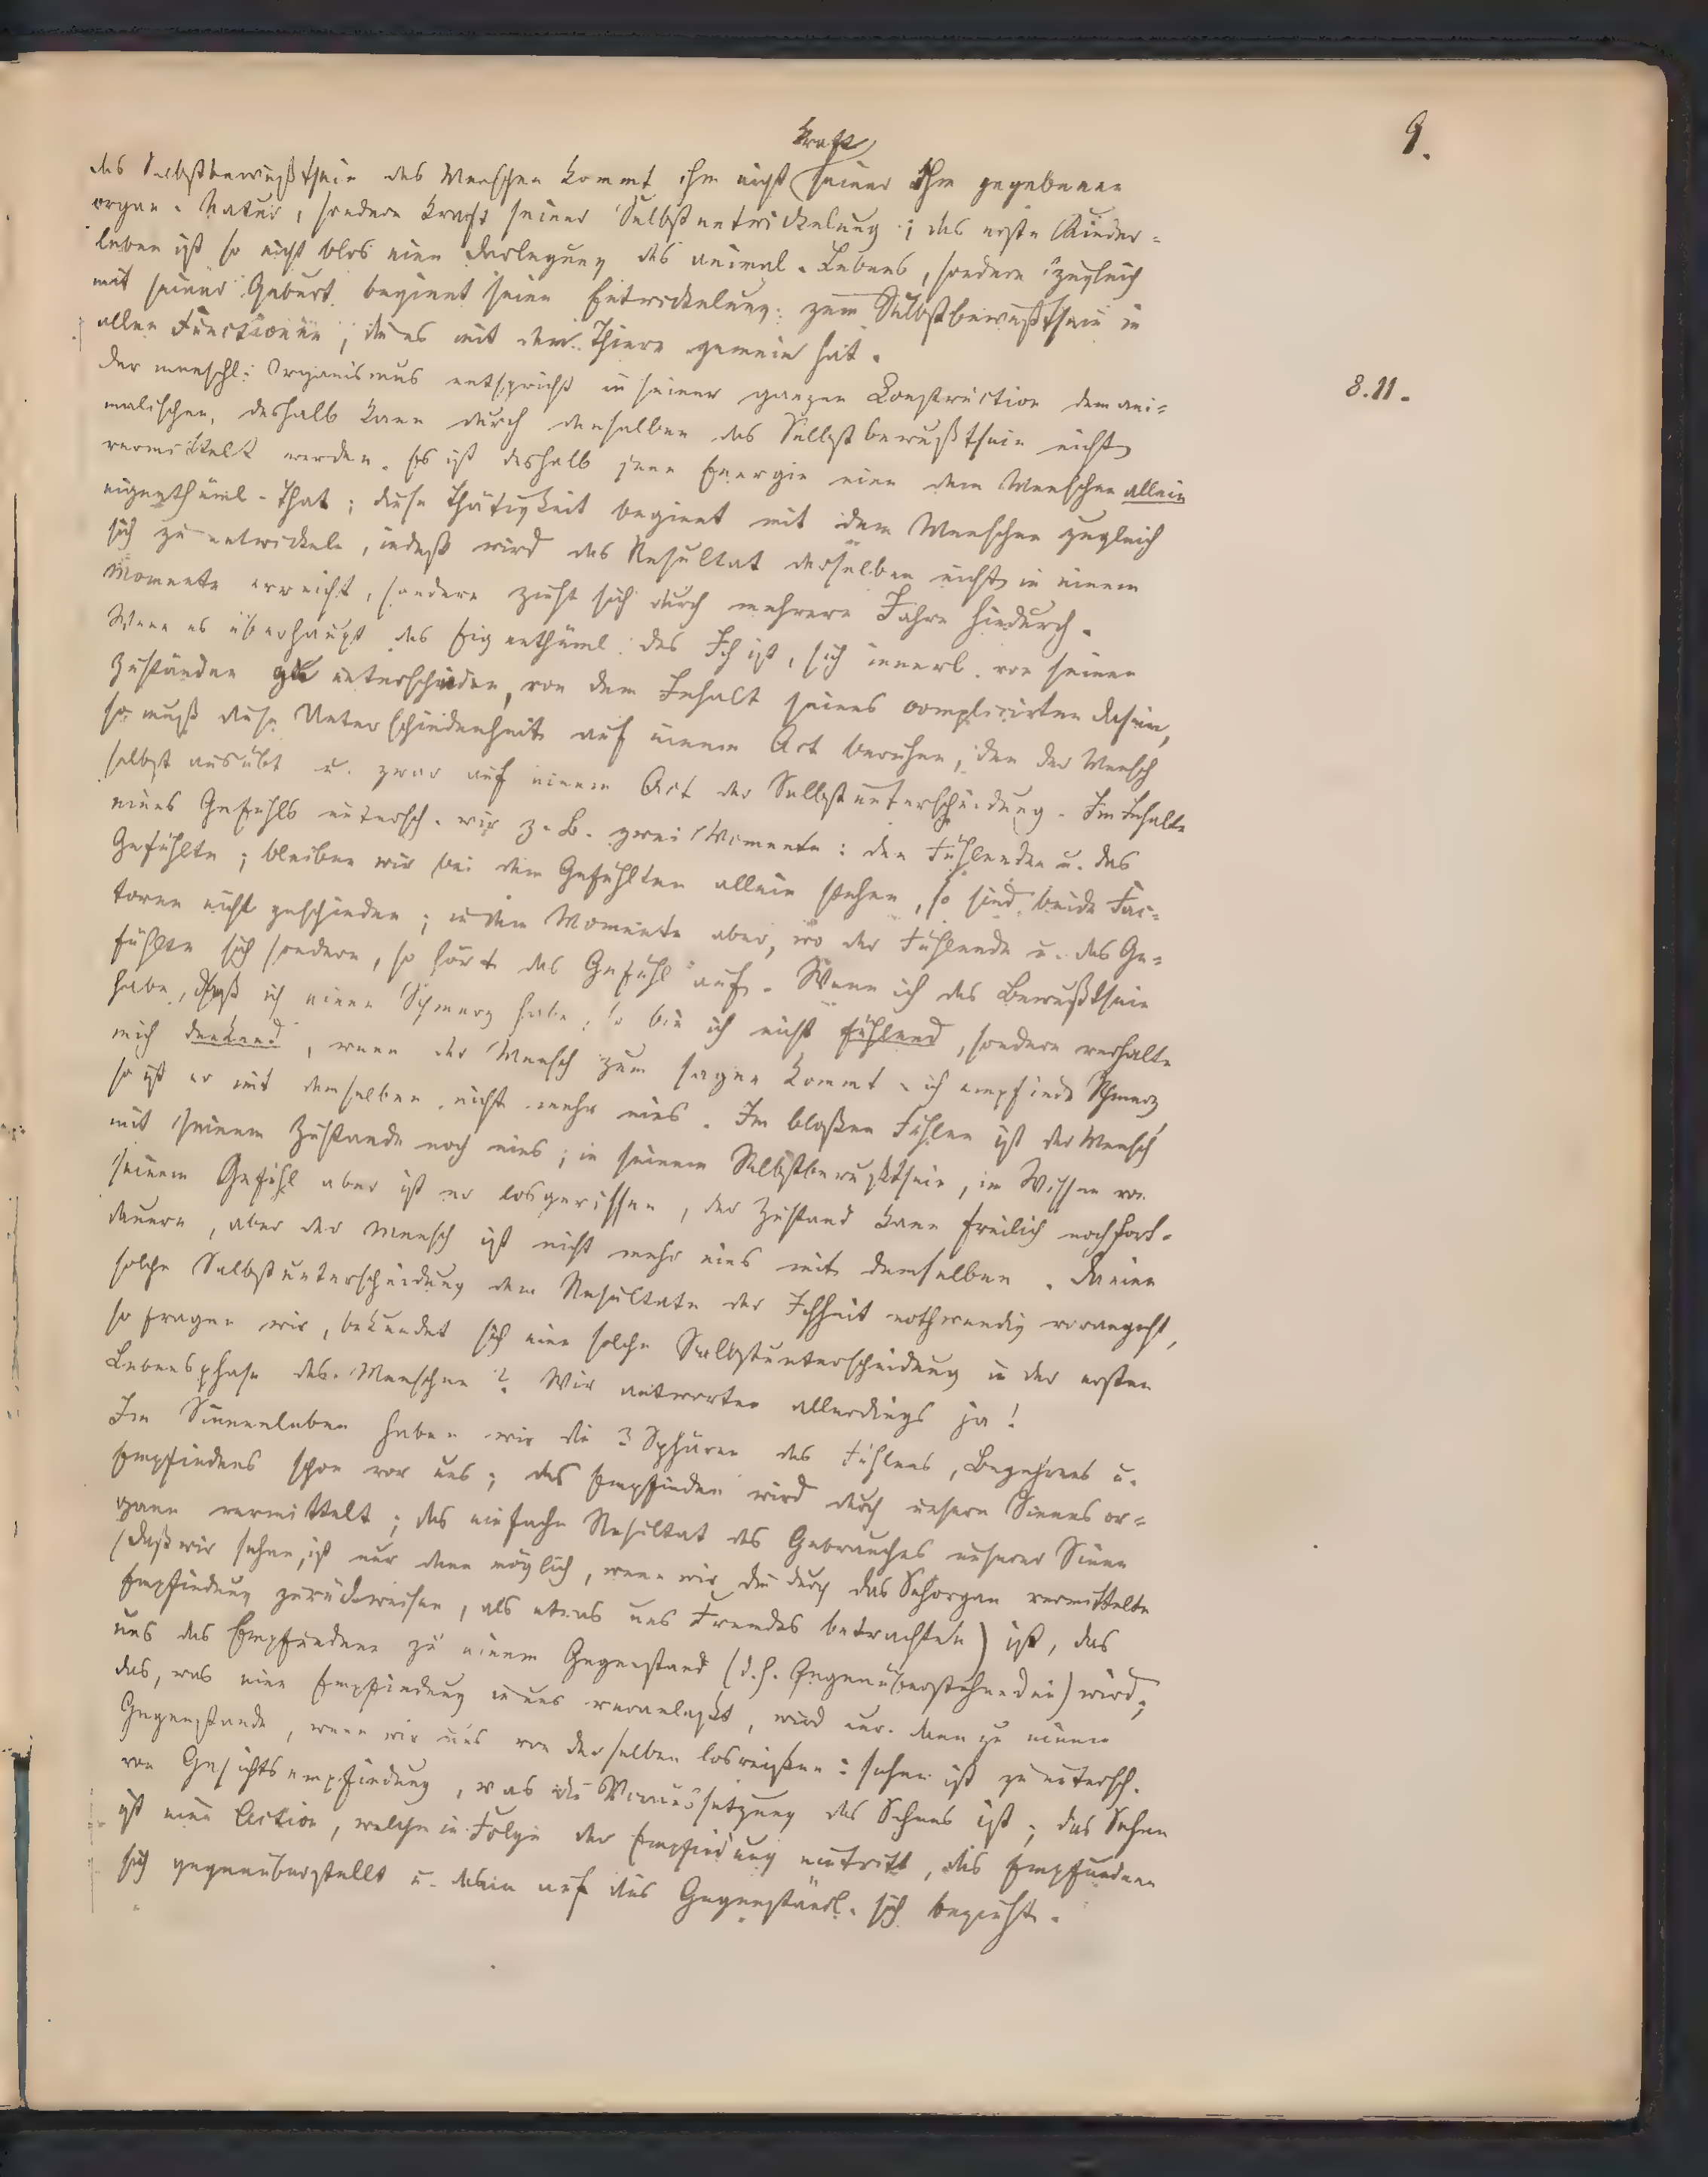 9.
kraft
das Selbstbewußtsein des Menschen kommt ihm nicht seiner ihm gegebenen
organ. Natur, sondern kraft seiner Selbstentwickelung; das erste Kinder=
leben ist so nicht blos eine Darlegung des animal. Lebens, sondern zugleich
mit seiner Geburt beginnt seine Entwickelung zum Selbstbewußtsein in
allen Functionen, die es mit dem Thiere gemein hat.
8.11.
Der menschl. Organismus entspricht in seiner ganzen Construction dem ani=
malischen, deshalb kann durch denselben das Selbstbewußtsein nicht
vermittelt werden. Es ist deshalb jene Energie eine dem Menschen allein
eigenthüml. That; diese Thätigkeit beginnt mit dem Menschen zugleich
sich zu entwickeln, indeß wird das Resultat derselben nicht in einem
Momente erreicht, sondern zieht sich durch mehrere Jahre hindurch.
Wenn es überhaupt das Eigenthüml. des Ich ist, sich innerl. von seinen
Zuständen zu unterscheiden, von dem Inhalt seines complicirten Daseins,
so muß diese Unterschiedenheit auf einem Act beruhen, den der Mensch
selbst ausübt u. zwar auf einem Act der Selbstunterscheidung. Im Inhalte
eines Gefühls untersch. wir z. B. zwei Momente: den Fühlenden u. das
Gefühlte; bleiben wir bei dem Gefühlten allein stehen, so sind beide Fac=
toren nicht geschieden; in dem Momente aber, wo der Fühlende u. das Ge=
fühlte sich sondern, so hört das Gefühl auf. Wenn ich das Bewußtsein
habe, daß ich einen Schmerz habe, so bin ich nicht fühlend, sondern verhalte
mich denkend, wenn der Mensch zum sagen kommt, ich empfinde Schmerz,
so ist er mit demselben nicht mehr eins. Im bloßen Fühlen ist der Mensch
mit seinem Zustande noch eins; in seinem Selbstbewußtsein, im Wissen von
seinem Gefühl aber ist er losgerissen, der Zustand kann freilich noch fort=
dauern, aber der Mensch ist nicht mehr eins mit demselben. Da eine
solche Selbstunterscheidung dem Resultate der Ichheit nothwendig vorangeht,
so fragen wir, bekundet sich eine solche Selbstunterscheidung in der ersten
Lebensphase des Menschen? Wir antworten allerdings ja!
Im Sinnenleben haben wir die 3 Sphären des Fühlens, Begehrens u.
Empfindens schon vor uns; das Empfinden wird durch unsere Sinnesor=
gane vermittelt; das einfache Resultat des Gebrauches unserer Sinne
(daß wir sehen, ist nur dann möglich, wenn wir die durch das Sehorgan vermittelte
Empfindung zurückweisen, als etwas uns Fremdes betrachten) ist, das
uns das Empfundene zu einem Gegenstand (d. h. Gegenüberstehenden) wird;
das, was eine Empfindung in uns veranlaßt, wird nur dann zu einem
Gegenstande, wenn wir uns von derselben losreißen: sehen ist zu untersch.
von Gesichtsempfindung, was die Voraussetzung des Sehens ist; das Sehen
ist eine Action, welche in Folge der Empfindung eintritt, das Empfundene
sich gegenüberstellt u. dann auf das Gegenständl. sich bezieht.